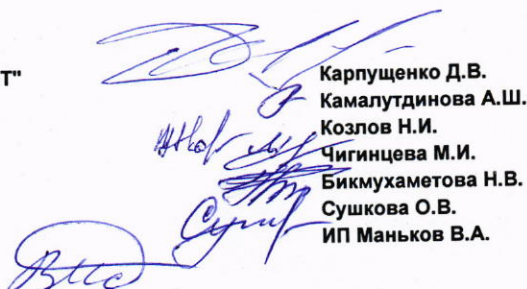 Т"
Карпущенко Д.В.
Камалутдинова А.Ш.
Козлов Н.И.
Чигинцева М.И.
Бикмухаметова Н.В.
Сушкова О.В.
ИП Маньков В.А.